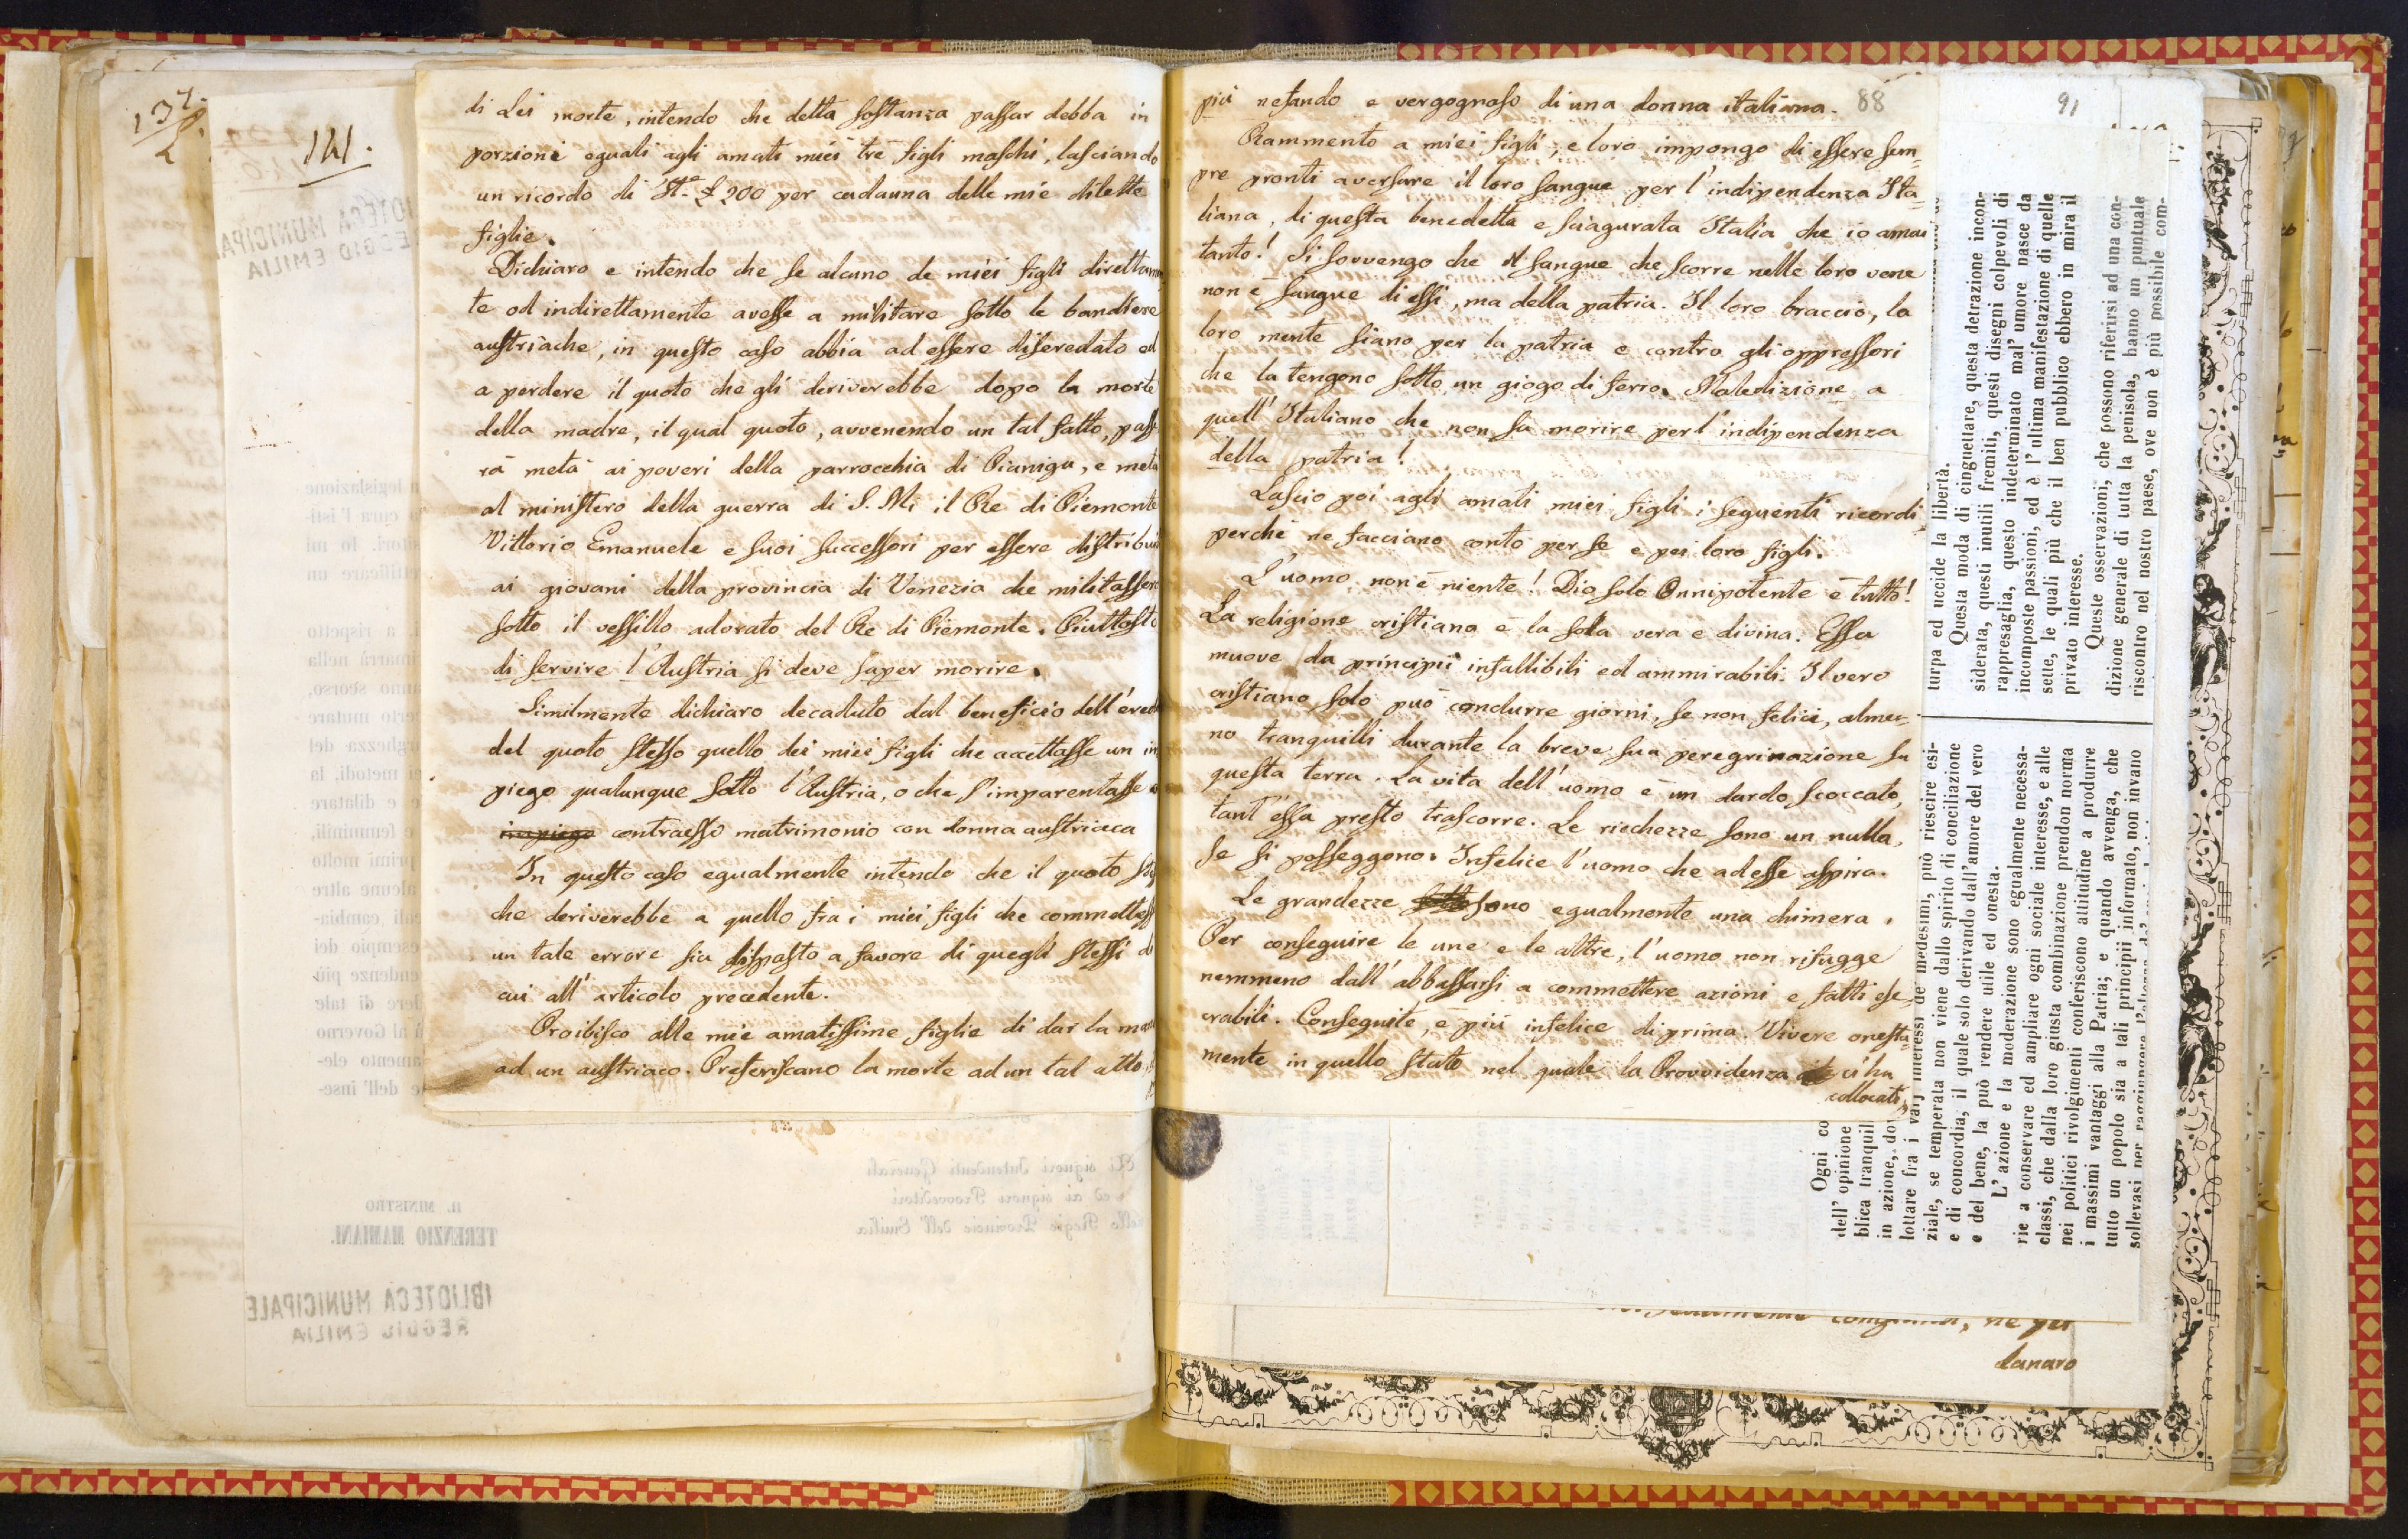 137.
2
141.
di Lei morte, intendo che detta sostanza passar debba in
porzioni eguali agli amati miei tre figli maschi, lasciando
un ricordo di St.e £ 200 per cadauna delle mie dilette
figlie.
Dichiaro e intendo che se alcuno de miei figli direttamen
te od indirettamente avesse a militare sotto le bandiere
austriache, in questo caso abbia ad essere diseredato ed
a perdere il quoto che gli deriverebbe dopo la morte
della madre, il qual quoto, avvenendo un tal fatto, passe
rà metà ai poveri della parrocchia di Pianiga, e metà
al ministero della guerra di S. M. il Re di Piemonte
Vittorio Emanuele e suoi successori per essere distribui
ai giovani della provincia di Venezia che militassero
sotto il vessillo adorato del Re di Piemonte. Piuttosto
di servire l'Austria si deve saper morire.
Similmente dichiaro decaduto dal beneficio dell'ered
del quoto stesso quello dei miei figli che accettasse un im
piego qualunque sotto l'Austria, o che s'imparentasse o
impiego contraesse matrimonio con donna austriaca
In questo caso egualmente intendo che il quoto ste
che deriverebbe a quello fra i miei figli che commettess
un tale errore sia disposto a favore di quegli stessi di
cui all' articolo precedente.
Proibisco alle mie amatissime figlie di dar la mano
ad un austriaco. Preferiscano la morte ad un tal atto
IL MINISTRO
TERENZIO MAMIANI.
BIBLIOTECA MUNICIPALE
REGGIO EMILIA
Ai signori Intendenti Generali
ed ai signori Provveditori
nelle Regie Provincie dell'Emilia
88
più nefando e vergognoso di una donna italiana.
Rammento a miei figli, e loro impongo di essere sem-
pre pronti a versare il loro sangue per l'indipendenza Ita-
liana, di questa benedetta e sciagurata Italia che io amai
tanto! Si sovvengo che il sangue che scorre nelle loro vene
non è sangue di essi, ma della patria. Il loro braccio, la
loro mente siano per la patria e contro gli oppressori
che la tengono sotto un giogo di ferro. Maledizione a
quell'Italiano che non sa morire per l'indipendenza
della patria!
Lascio poi agli amati miei figli i seguenti ricordi
perchè ne facciano conto per se e pei loro figli.
L'uomo non è niente! Dio solo Onnipotente è tutto!
La religione cristiana è la sola vera e divina. Essa
muove da principii infallibili ed ammirabili. Il vero
cristiano solo può condurre giorni, se non felici, alme-
no tranquilli durante la breve sua peregrinazione su
questa terra. La vita dell'uomo è un dardo scoccato,
tant'essa presto trascorre. Le ricchezze sono un nulla,
se si posseggono. Infelice l'uomo che ad esse aspira.
Le grandezze sono egualmente una chimera.
Per conseguire le une e le altre, l'uomo non rifugge
nemmeno dall'abbassarsi a commettere azioni e fatti ese-
crabili. Conseguite, è più infelice di prima. Vivere onesta-
mente in quello stato nel quale la Provvidenza ci ha
collocati,
91
turpa ed uccide la libertà.
Questa moda di cinguettare, questa detrazione incon-
siderata, questi inutili fremiti, questi disegni colpevoli di
rappresaglia, questo indeterminato mal' umore nasce da
incomposte passioni, ed è l'ultima manifestazione di quelle
sette, le quali più che il ben pubblico ebbero in mira il
privato interesse.
Queste osservazioni, che possono riferirsi ad una con-
dizione generale di tutta la penisola, hanno un puntuale
riscontro nel nostro paese, ove non è più possibile com-
Ogni co
dell' opinione
blica tranquil
in azione, do
lottare fra i varj interessi de' medesimi, può riescire esi-
ziale, se temperata non viene dallo spirito di conciliazione
e di concordia, il quale solo derivando dall'amore del vero
e del bene, la può rendere utile ed onesta.
L'azione e la moderazione sono egualmente necessa-
rie a conservare ed ampliare ogni sociale interesse, e alle
classi, che dalla loro giusta combinazione prendon norma
nei politici rivolgimenti conferiscono attitudine a produrre
i massimi vantaggi alla Patria; e quando avvenga, che
tutto un popolo sia a tali principii informato, non invano
sollevasi per raggiungere
ne per
danaro